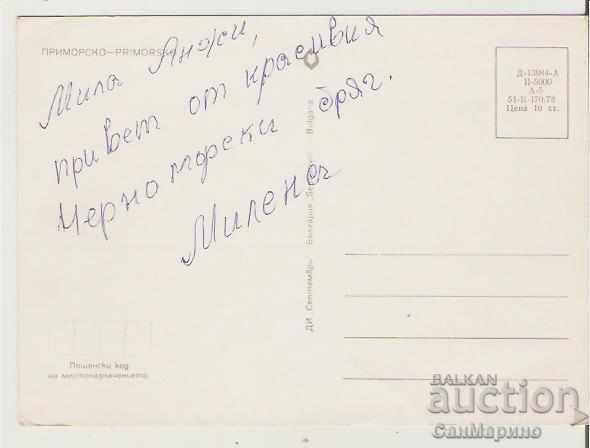 ПРИМОРСКО—PRIMORSKO
Мила Анжи,
привет от красивия
Черноморски бряг.
Милена
Д-13984-А
П-5000
А-5
51-К-170.78
Цена 10 ст.
ДИ „Септември“ България Bulgaria
Пощенски код
на местоназначението
BALKAN
auction
СанМарино